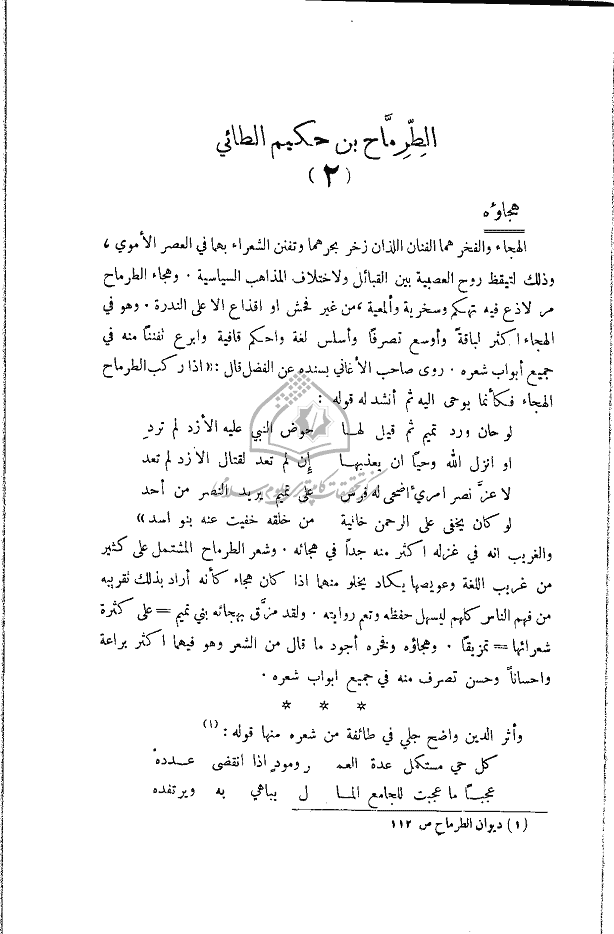 الطِّرِمَّاح بن حكيم الطائي
(٢)
هجاؤه
الهجاء والفخر هما الفنان اللذان زخر بحرهما وتفنن الشعراء بهما في العصر الأموي ،
وذلك لتيقظ روح العصبية بين القبائل ولاختلاف المذاهب السياسية . وهجاء الطرماح
مر لاذع فيه تهكم وسخرية وألمعية ،من غير فحش او اقذاع الا على الندرة . وهو في
الهجاء اكثر لباقة وأوسع تصرفاً وأسلس لغة واحكم قافية وابرع تفنناً منه في
جميع أبواب شعره . روى صاحب الأغاني بسنده عن الفضل قال : «اذا ركب الطرماح
الهجاء فكأنما يوحى اليه ثم أنشد له قوله :
لو حان ورد تميم ثم قيل لهـا حوض النبي عليه الأزد لم تردِ
او انزل الله وحياً ان يعذبهـا إن لم تعد لقتال الأزد لم تعد
لا عزَّ نصر امرئ اضحى له فرس على تميم يريد النصر من أحد
لو كان يخفى على الرحمن خانية من خلقه خفيت عنه بنو اسد»
والغريب انه في غزله اكثر منه جداً في هجائه . وشعر الطرماح المشتمل على كثير
من غريب اللغة وعويصها يكاد يخلو منهما اذا كان هجاء كأنه أراد بذلك تقريبه
من فهم الناس كلهم ليسهل حفظه وتعم روايته . ولقد مزَّق بهجائه بني تميم = على كثرة
شعرائها = تمزيقاً . وهجاؤه وفخره أجود ما قال من الشعر وهو فيهما اكثر براعة
واحساناً وحسن تصرف منه في جميع ابواب شعره .
* * *
وأثر الدين واضح جلي في طائفة من شعره منها قوله : (١)
كل حي مستكمل عدة العمـ ر ومودٍ اذا انقضى عـدده
عجبـاً ما عجبت للجامع المـا ل يباهي به ويرتفده
(١) ديوان الطرماح ص ١١٢